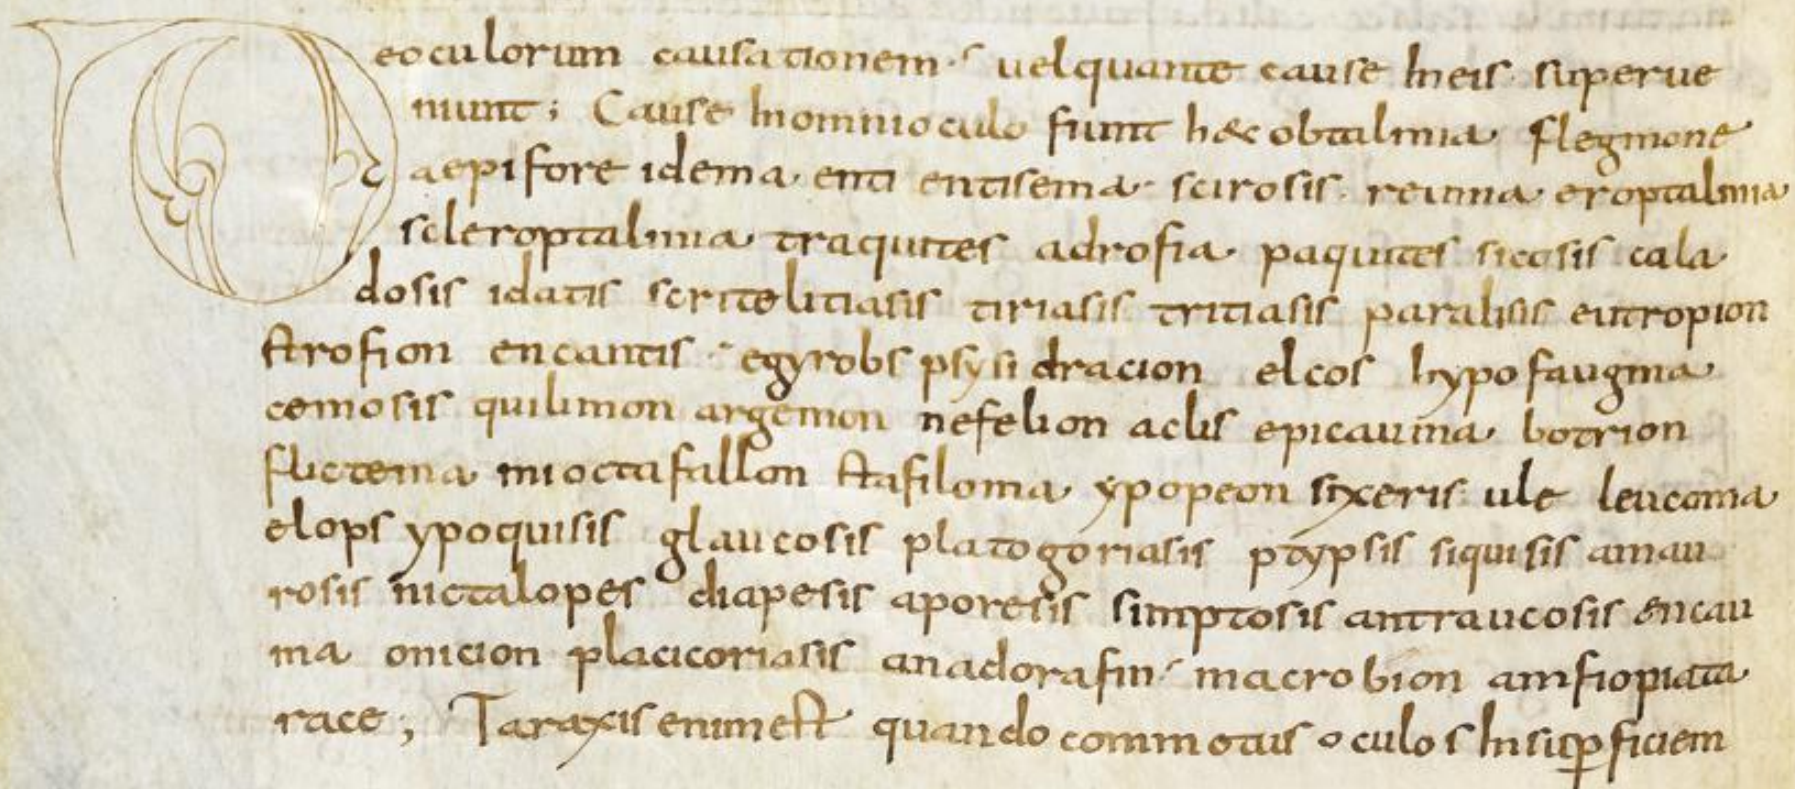 Deoculorum causationem· uelquante cause Ineis superue
niunt; Cause Inomnioculo fiunt h&c obtalmia flegmone
aepifore idema enti entisema scirosis reuma eroptalmia
scleroptalmia traquites adrofia paquites sicosis cala
dosis idatis scritelitiasis tiriasis tritiasis paralisis eutropion
strofion encantis· egyrobs psysidracion elcos hypofaugma
cemosis quilimon argemon nefelion aclis epicauma botrion
flictema miocta fallon stafiloma ypopeon sixeris ule leucoma
elops ypoquisis glaucosis platogoriasis ptypsis siquisis amau
rosis nictalopes diapesis aporesis simptosis antraucosis encau
ma onicion placicoriasis anadorafin· macrobion amfiopiata
race; Taraxis enim est quando commotus oculos Insuꝑficiem